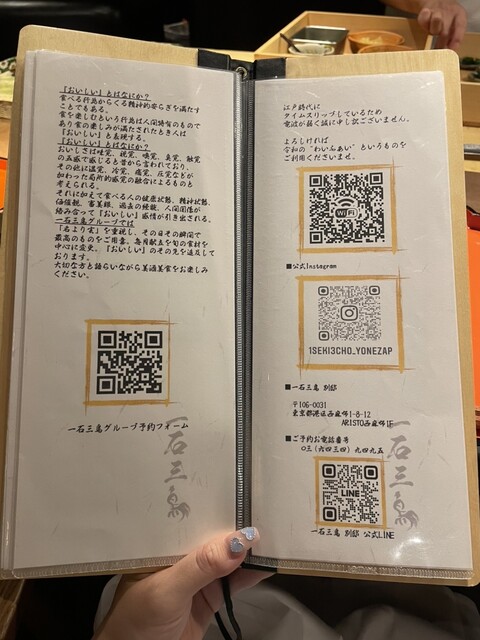 『おいしい』とはなにか？
食べる行為からくる精神的安らぎを満たす
ことでもある。
食を楽しむという行為は人間特有のもので
あり食の楽しみが満たされたとき人は
『おいしい』と表現する。
おいしさは味覚、視覚、嗅覚、臭覚、触覚
の五感で感じると昔から言われており、
その他に温覚、冷覚、痛覚、圧覚などが
加わった局所的感覚の融合によるものと
考えられる。
それに加えて食べる人の健康状態、精神状態、
価値観、審美眼、過去の経験、人間関係が
絡み合って『おいしい』感情が引き出される。
一石三鳥グループでは
『名より実』を重視し、その日その瞬間で
最高のものをご用意。毎月献立を旬の食材を
中心に変更。『おいしい』のその先を追及して
おります。
大切な方と語らいながら美酒美食をお楽しみ
ください。
一石三鳥グループ予約フォーム
一石三鳥
江戸時代に
タイムスリップしているため
電波が弱く誠に申し訳ございません。
よろしければ
令和の“わいふぁい”というものを
ご利用くださいませ。
WiFi
■公式Instagram
1SEKI3CHO_YONEZAP
■一石三鳥 別邸
〒106-0031
東京都港区西麻布1-8-12
ARISTO西麻布1F
■ご予約お電話番号
〇三（六四三四）九四九五
LINE
一石三鳥 別邸 公式LINE
一石三鳥